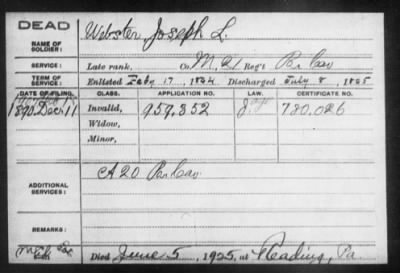 DEAD
NAME OF SOLDIER: Webster, Joseph L.
SERVICE: Late rank, Co. M, 21 Reg't Pa Cav
TERM OF SERVICE: Enlisted Feby 17, 1864 Discharged July 8, 1865
DATE OF FILING. CLASS. APPLICATION NO. LAW. CERTIFICATE NO.
1890 Dec 11 Invalid, 959,352 780,026
Widow,
Minor,
ADDITIONAL SERVICES: Pa Cav
REMARKS:
Died June 5, 1925, at Reading, Pa.